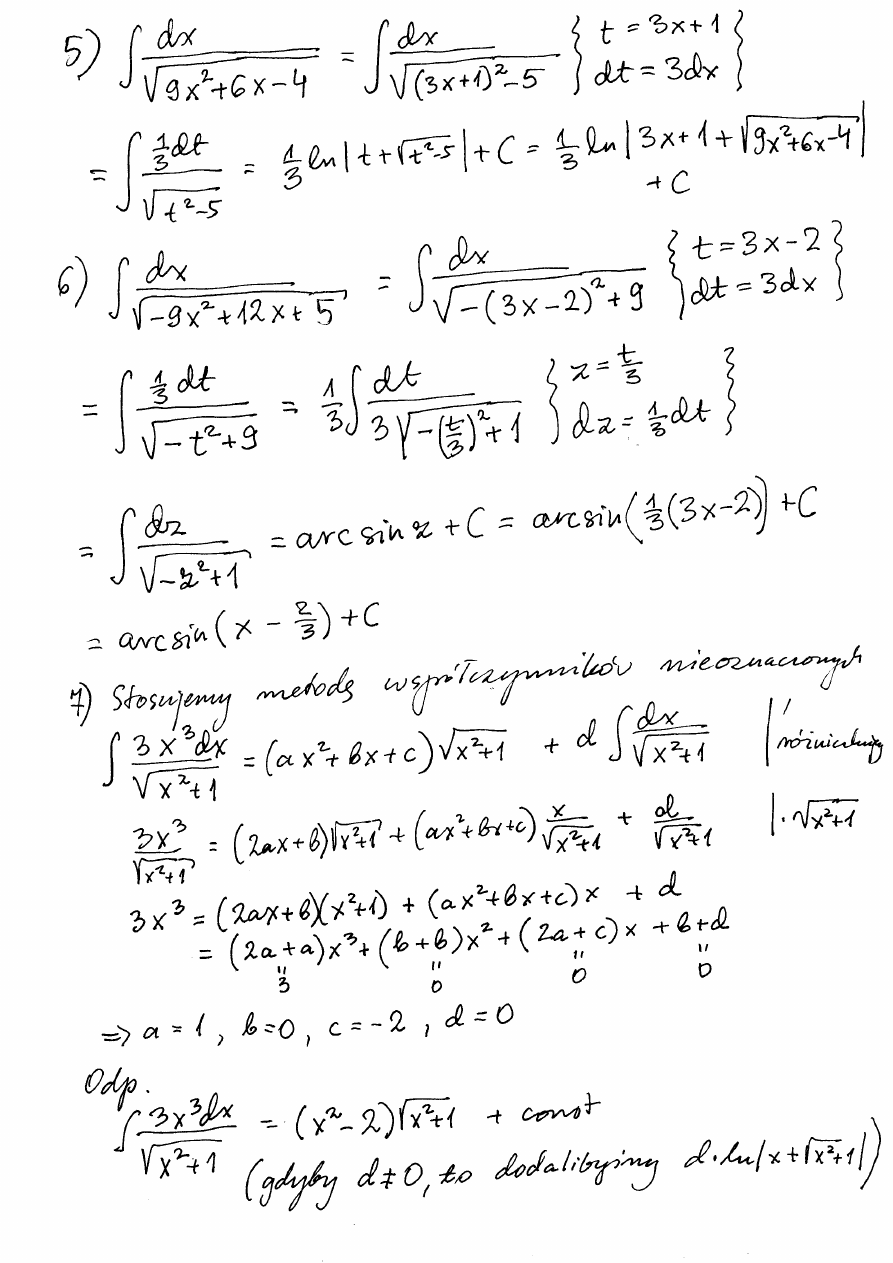 5) ∫ dx/√(9x²+6x−4) = ∫ dx/√((3x+1)²−5) { t = 3x+1 }
{ dt = 3dx }
= ∫ ⅓dt/√(t²−5) = ⅓ ln|t+√(t²−5)| + C = ⅓ ln|3x+1+√(9x²+6x−4)|
+ C
6) ∫ dx/√(−9x²+12x+5) = ∫ dx/√(−(3x−2)²+9) { t = 3x−2 }
{ dt = 3dx }
= ∫ ⅓dt/√(−t²+9) = ⅓ ∫ dt/(3√(−(t/3)²+1)) { z = t/3 }
{ dz = ⅓dt }
= ∫ dz/√(−z²+1) = arc sin z + C = arcsin(⅓(3x−2)) + C
= arcsin(x − ⅔) + C
7) Stosujemy metodę współczynników nieoznaczonych
∫ 3x³dx/√(x²+1) = (ax²+bx+c)√(x²+1) + d ∫ dx/√(x²+1) |′ różniczkuję
3x³/√(x²+1) = (2ax+b)√(x²+1) + (ax²+bx+c) x/√(x²+1) + d/√(x²+1) |·√(x²+1)
3x³ = (2ax+b)(x²+1) + (ax²+bx+c)x + d
= (2a+a)x³ + (b+b)x² + (2a+c)x + b+d
" " " "
3 0 0 0
⇒ a = 1, b=0, c = −2, d = 0
Odp.
∫ 3x³dx/√(x²+1) = (x²−2)√(x²+1) + const
(gdyby d≠0, to dodalibyśmy d·ln|x+√(x²+1)|)